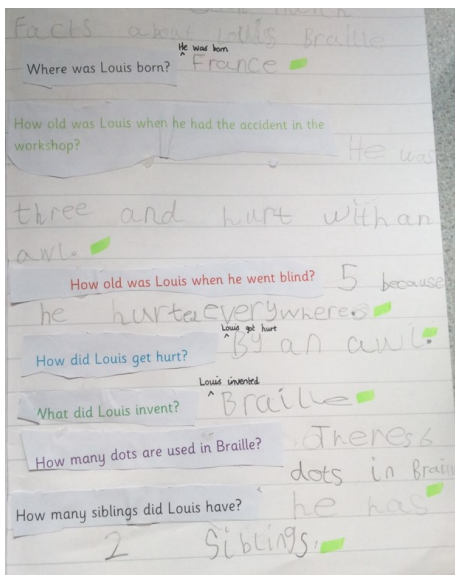 Facts about Louis Braille
He was born
Where was Louis born? ^ France
How old was Louis when he had the accident in the
workshop?
He was
three and hurt with an
awl.
How old was Louis when he went blind? 5 because
he hurt everywhere.
Louis got hurt
How did Louis get hurt? ^ By an awl.
Louis invented
What did Louis invent? ^ Braille
How many dots are used in Braille? Theres 6
dots in Brail
How many siblings did Louis have? he has
2 Siblings.